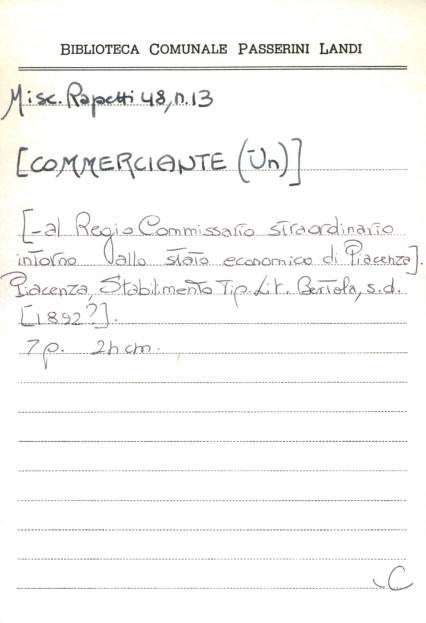 BIBLIOTECA COMUNALE PASSERINI LANDI
Misc. Rapetti 48, n.13
[COMMERCIANTE (Un)]
[-al Regio Commissario straordinario
intorno allo stato economico di Piacenza].
Piacenza, Stabilimento Tip. Lit. Bertola, s.d.
[1892?].
7 p. 24 cm.
C